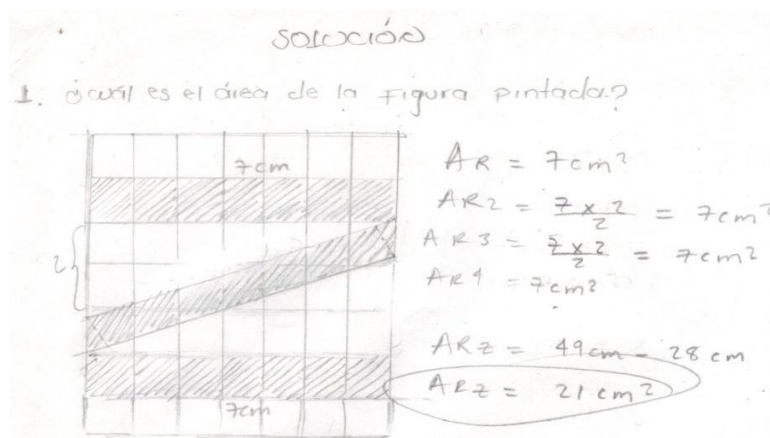 SOLUCIÓN
1. ¿cuál es el área de la figura pintada?
7cm
2
7cm
AR = 7cm²
AR2 = 7x2/2 = 7cm²
AR3 = 7x2/2 = 7cm²
AR4 = 7cm²
ARZ = 49cm - 28cm
ARZ = 21cm²